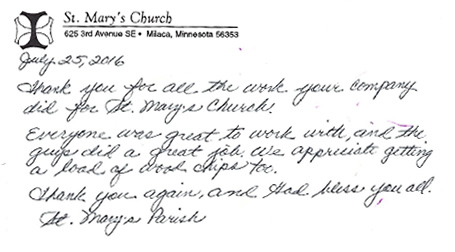 St. Mary's Church
625 3rd Avenue SE • Milaca, Minnesota 56353
July 25, 2016
Thank you for all the work your company
did for St. Mary's Church.
Everyone was great to work with, and the
guys did a great job. We appreciate getting
a load of wood chips too.
Thank you again, and God bless you all.
St. Mary's Parish